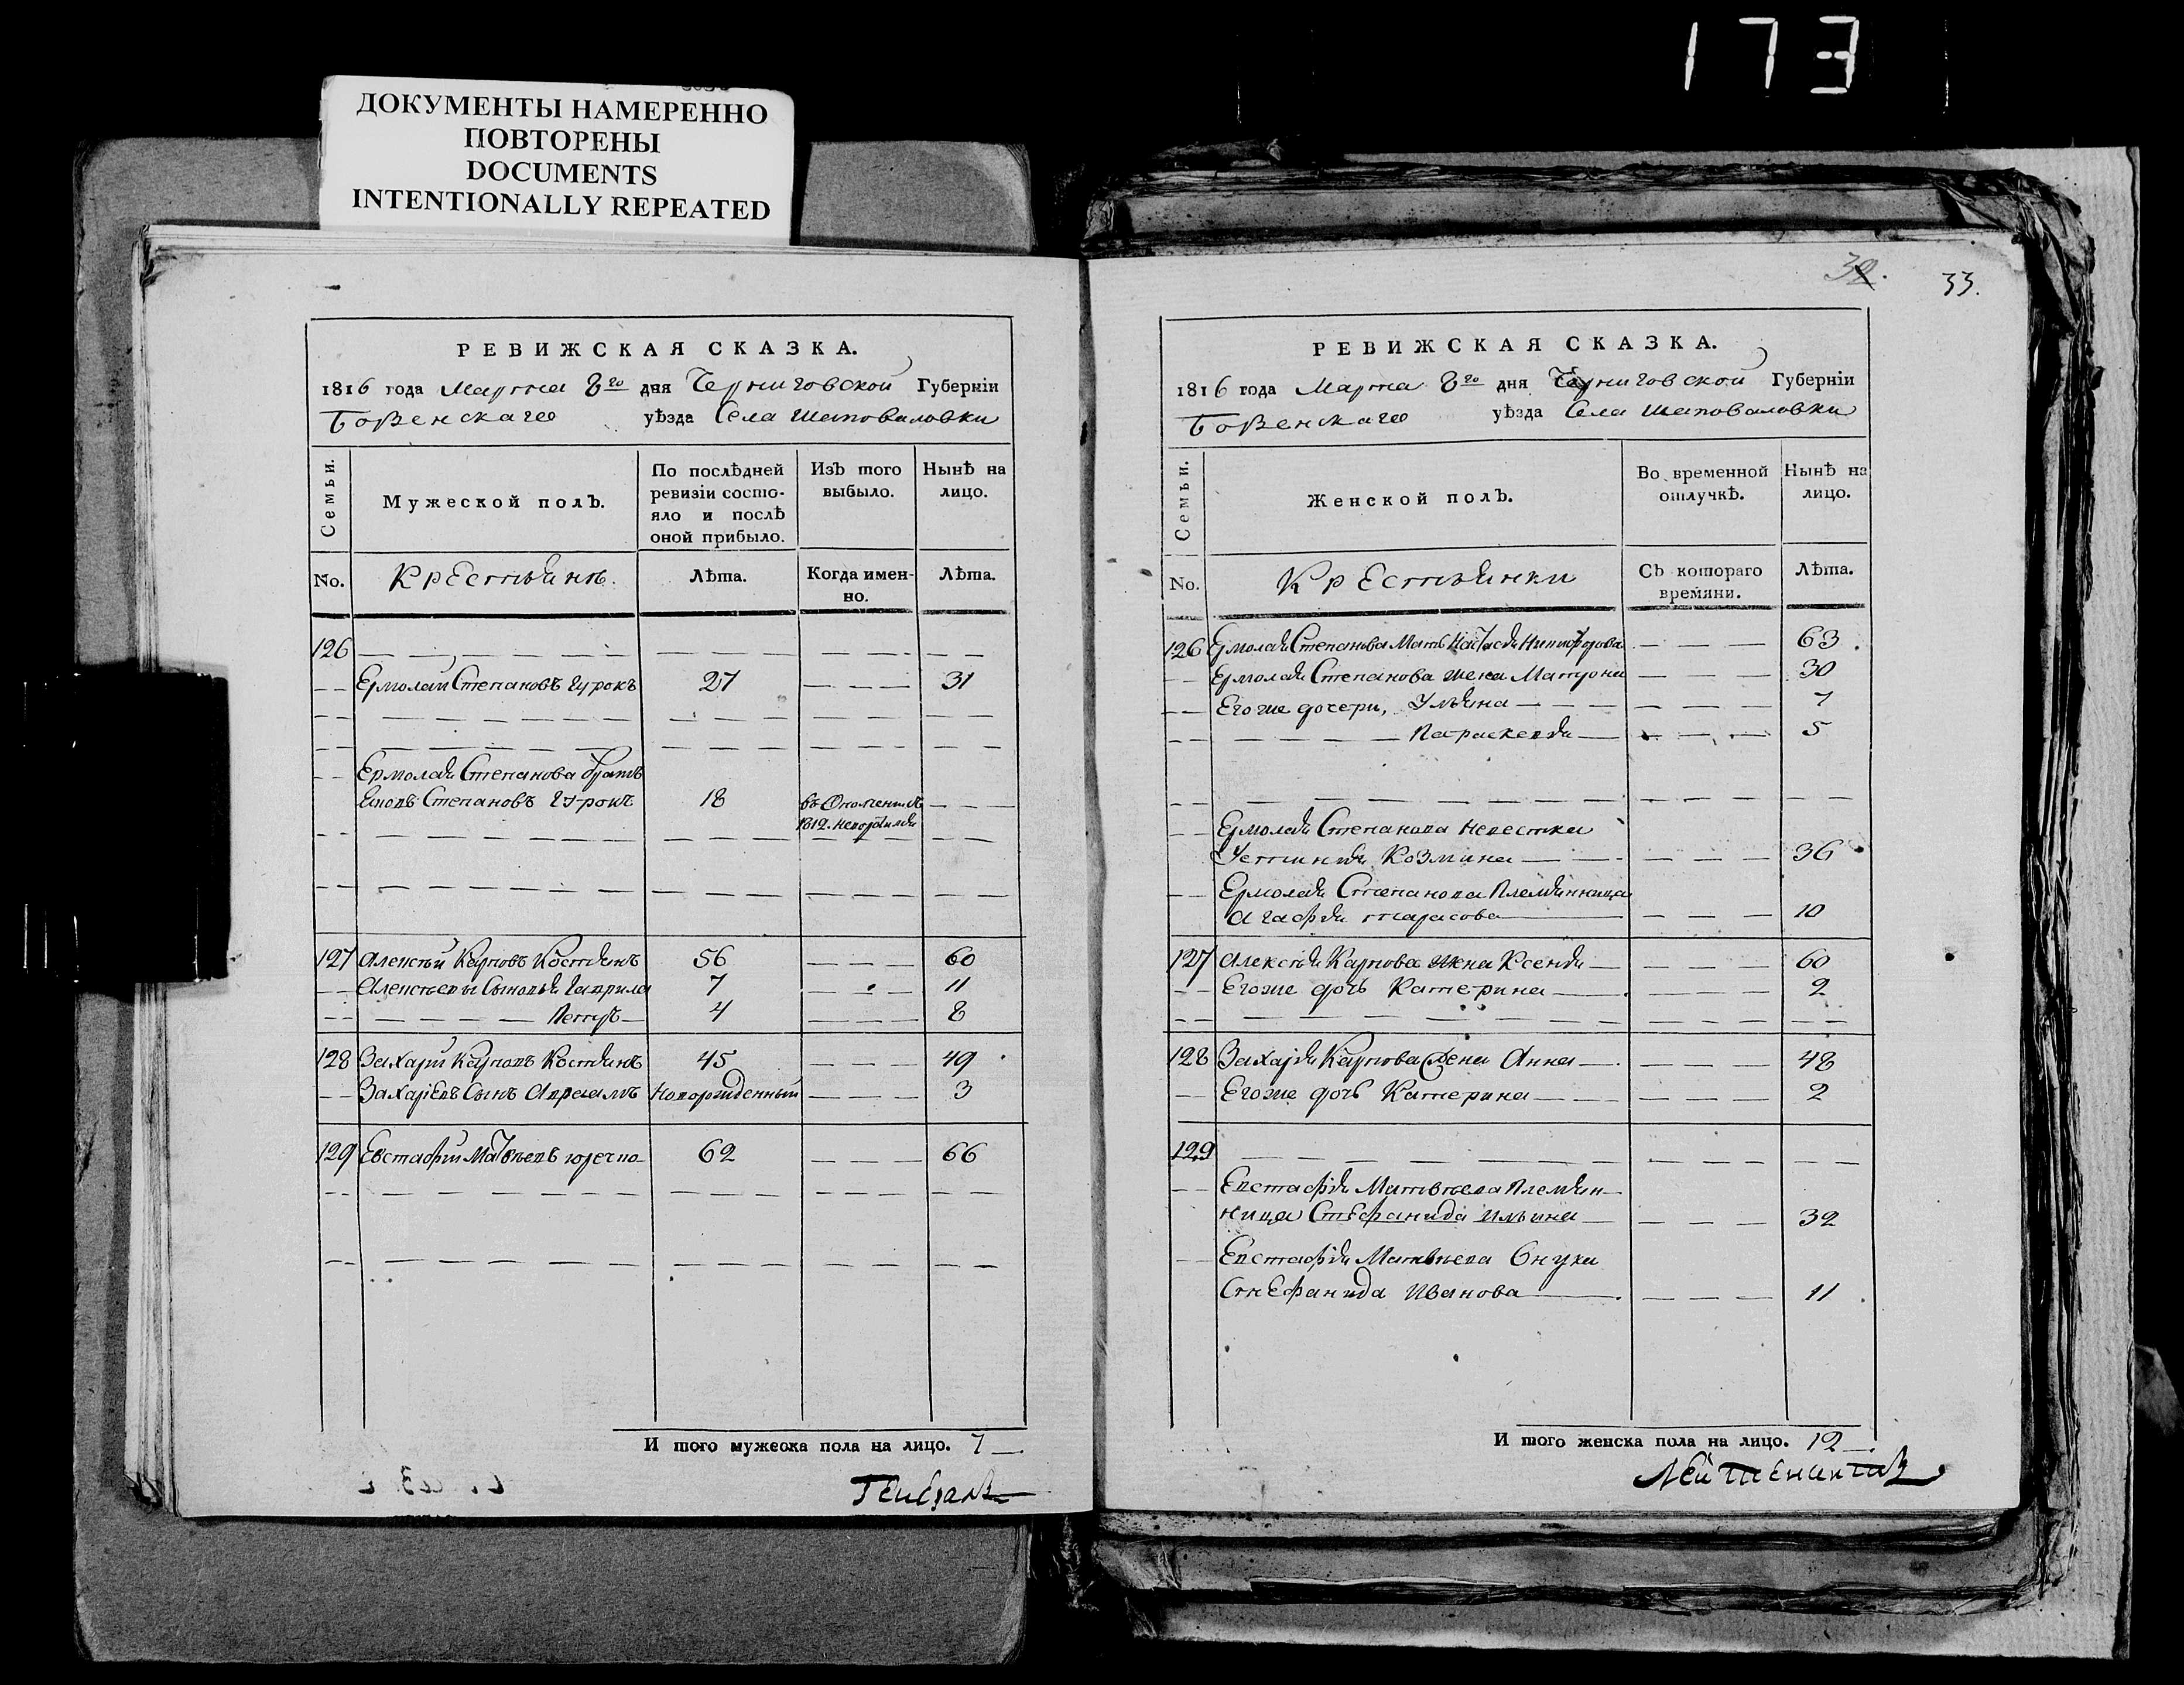 173
ДОКУМЕНТЫ НАМЕРЕННО
ПОВТОРЕНЫ
DOCUMENTS
INTENTIONALLY REPEATED
РЕВИЖСКАЯ СКАЗКА.
1816 года Марта 8го дня Черниговской Губерніи
Борзенскаго уѣзда Села Шаповаловки
Семьи.
Мужеской полъ.
По послѣдней ревизіи состо-
яло и послѣ оной прибыло.
Изъ того выбыло.
Нынѣ на лицо.
No. Крестьянъ. Лѣта. Когда имен-
но. Лѣта.
126
Ермолай Степановъ Гурокъ 27 31
Ермолая Степанова братъ
Степановъ Гурокъ 18 въ Ополченіе
1812.
127 Алексѣй Карповъ Костянъ 56 60
Алексѣевы Сыновья Гаврила 7 11
Петръ 4 8
128 Захарій Карповъ Костянъ 45 49
Захаріевъ Сынъ Авраамъ Новорожденный 3
129 Евстафій Матвѣевъ 62 66
И того мужеска пола на лицо. 7
Генералъ
32.
33.
РЕВИЖСКАЯ СКАЗКА.
1816 года Марта 8го дня Черниговской Губерніи
Борзенскаго уѣзда Села Шаповаловки
Семьи.
Женской полъ.
Во временной отлучкѣ.
Нынѣ на лицо.
No. Крестьянки Съ котораго
времяни. Лѣта.
126 Ермолая Степанова Мать Настасья Никифорова 63
Ермолая Степанова жена Матрона 30
Его же дочери, Ульяна 7
Параскевія 5
Ермолая Степанова Невестка
Устинія Козмина 36
Ермолая Степанова Племянница
Агафія Тарасова 10
127 Алексѣя Карпова жена Ксенія 60
Его же дочь Катерина 2
128 Захарія Карпова жена Анна 48
Его же дочь Катерина 2
129
Евстафія Матвѣева Племян-
ница Стефанида Ильина 32
Евстафія Матвѣева Внука
Стефанида Иванова 11
И того женска пола на лицо. 12
Лейтенантъ